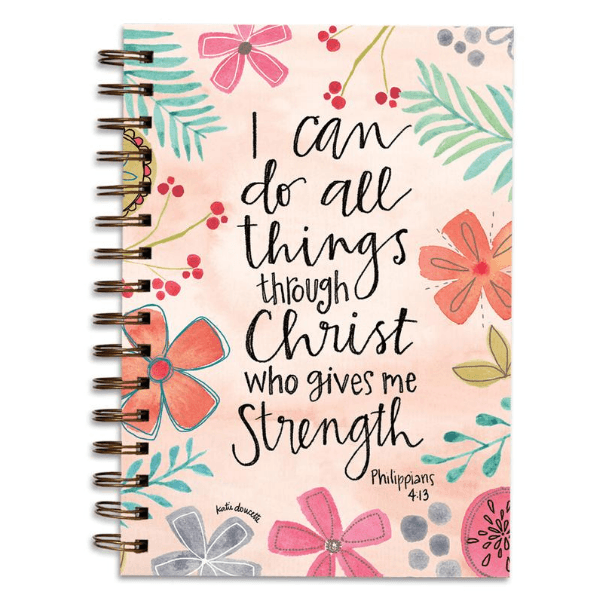 I can
do all
things
through
Christ
who gives me
Strength
Philippians
4:13
katie doucette